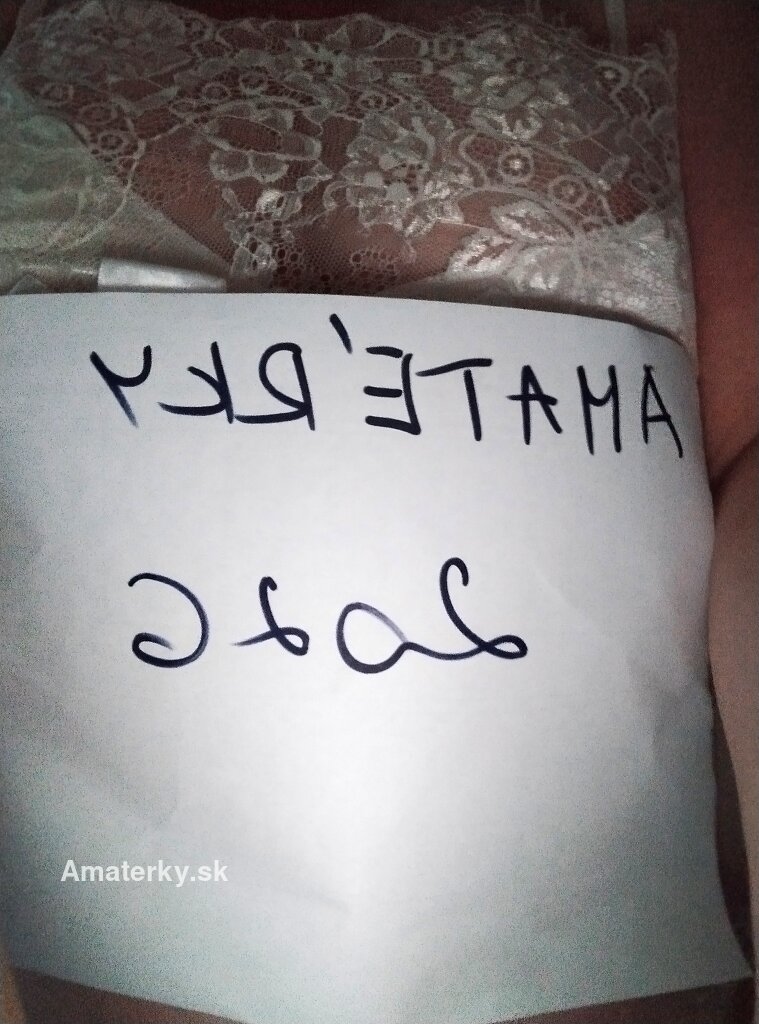 AMATÉRKY
Amaterky.sk